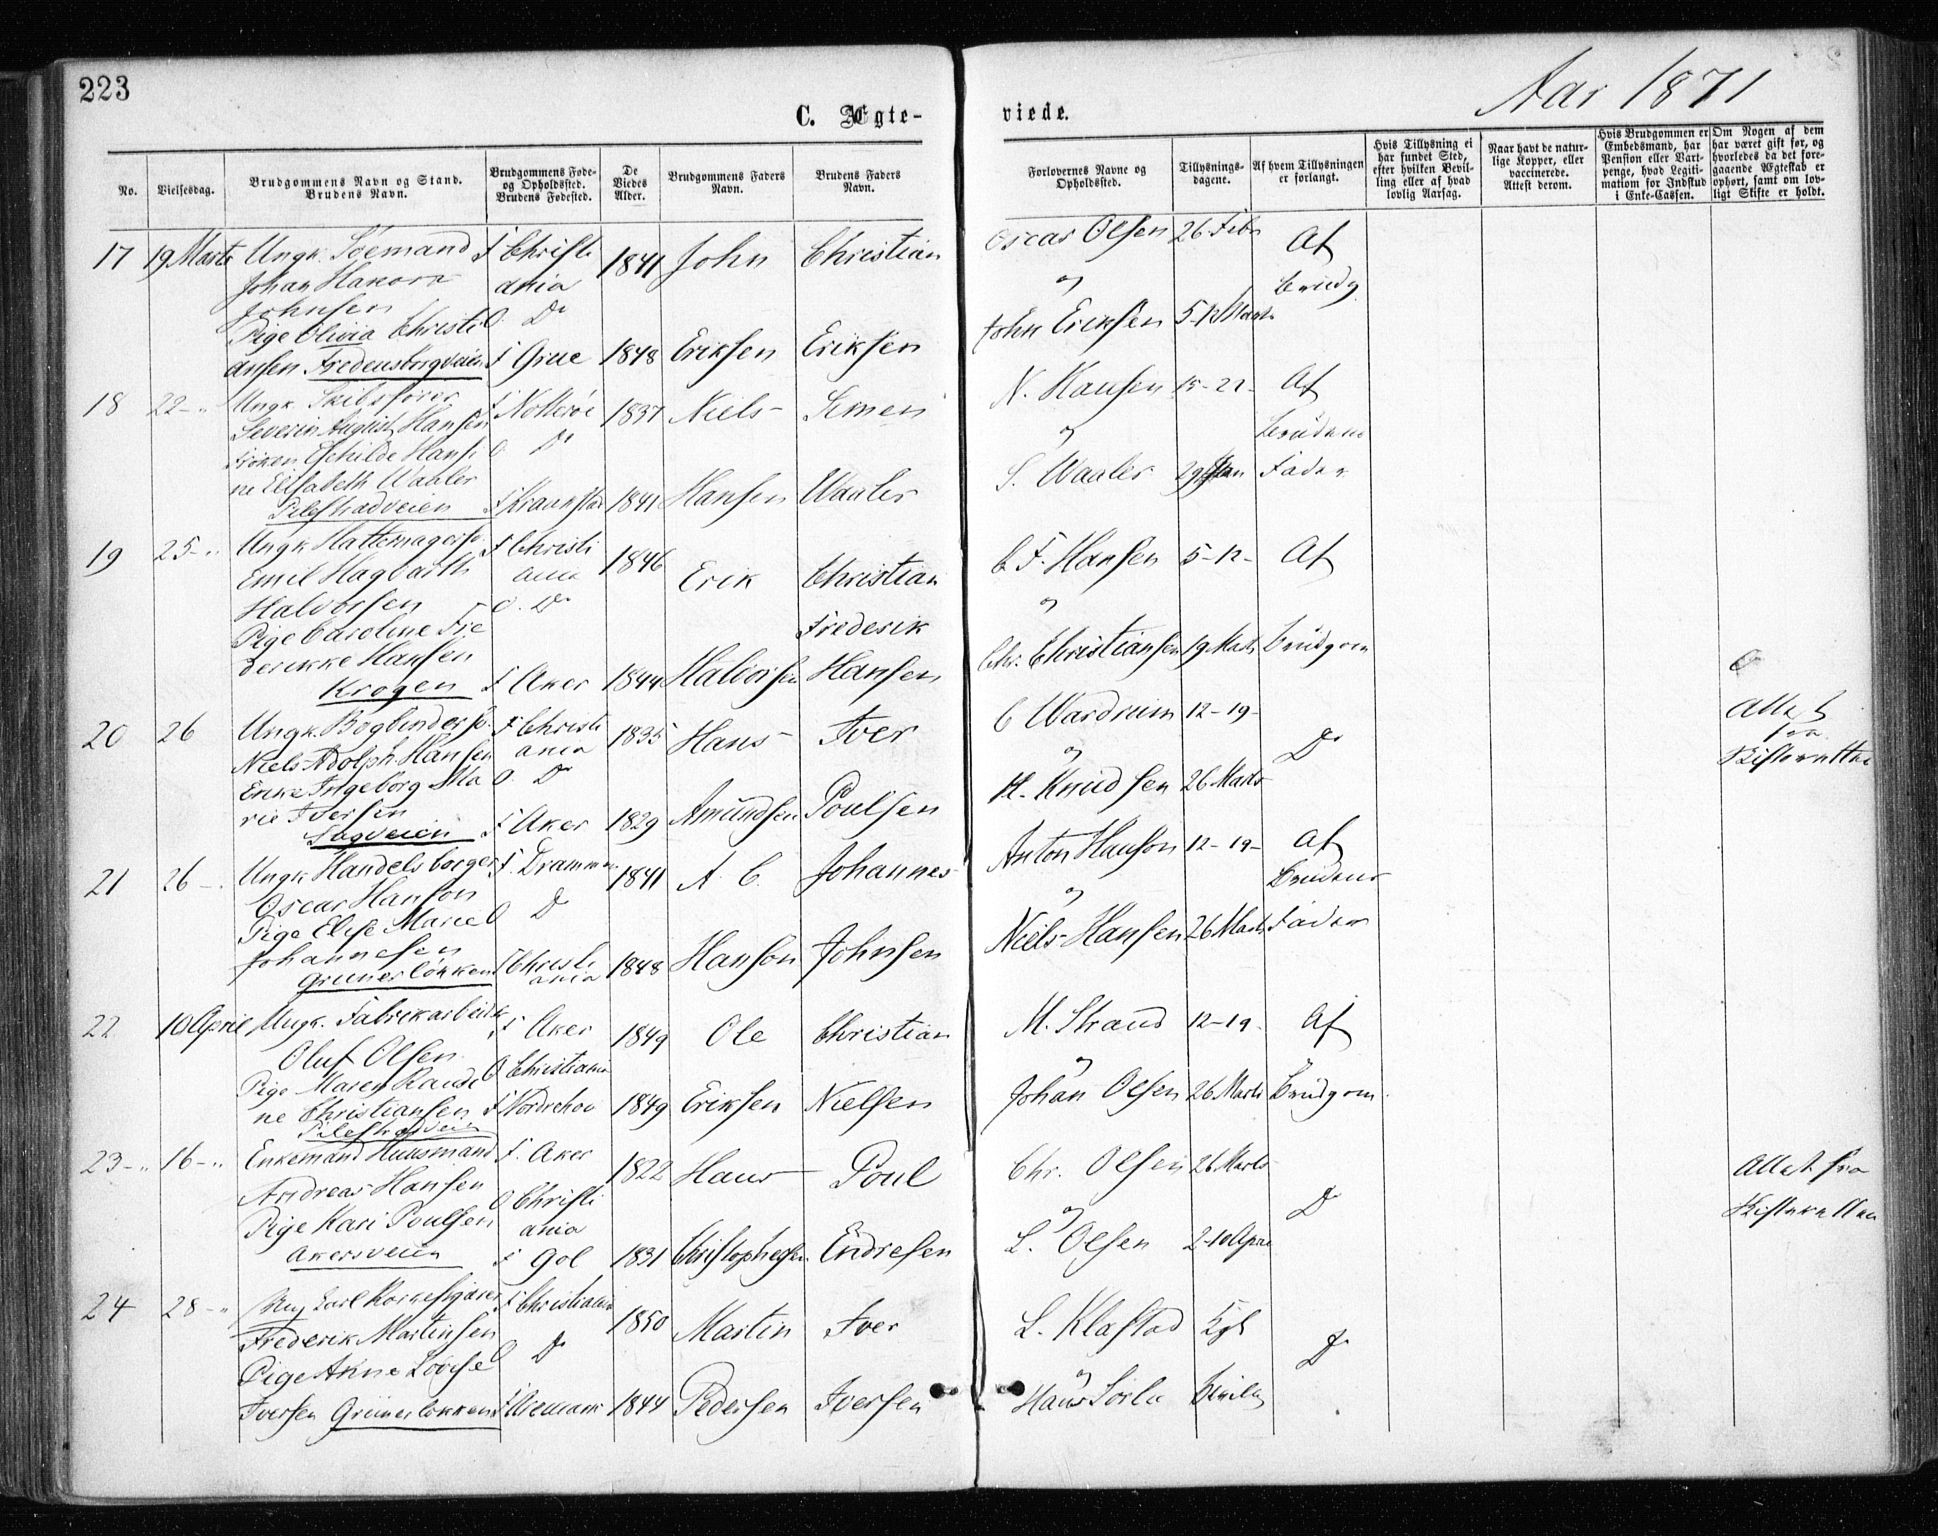 223
C. Ægte-
viede.
Aar 1871
No.
Vielsesdag.
Brudgommens Navn og Stand.
Brudens Navn.
Brudgommens Føde-
og Opholdssted.
Brudens Fødested.
De
Viedes
Alder.
Brudgommens Faders
Navn.
Brudens Faders
Navn.
Forlovernes Navne og
Opholdssted.
Tillysnings-
dagene.
Af hvem Tillysningen
er forlangt.
Hvis Tillysning ei
har fundet Sted,
efter hvilken Bevil-
ling eller af hvad
lovlig Aarsag.
Naar havt de natur-
lige Kopper, eller
vaccinerede.
Attest derom.
Hvis Brudgommen er
Embedsmand, har
Pension eller Vart-
penge, hvad Legiti-
mation for Indskud
i Enke-Cassen.
Om Nogen af dem
har været gift før, og
hvorledes da det fore-
gaaende Ægteskab er
ophørt, samt om lov-
ligt Skifte er holdt.
17 19 Marts Ungk. Søemand F Christi 1841 John Christian Oscar Olsen 26 Febr Af
Johan Hakon ania og Brudg.
Johnsen O. Do
Pige Olivia Christi John Eriksen 5-12 Marts
ansen Fredensborgveien F Grue 1848 Eriksen Eriksen
18 22 - " Ungk. Skibsfører F Notterøe 1837 Niels Simen N. Hansen 15-22- Af
Severin August Hansen O Do og Brudens
Frøken Hansi
ne Elisabeth Waaler S. Waaler 29 Jan Fader
Pilestrædveien F Kraakstad 1841 Hansen Waaler
19 25 - " Ungk. Hattemagersv. F Christi 1846 Erik Christian C. F. Hansen 5-12- Af
Emil Hagbarth ania
Halvorsen O. Do Frederik og
Pige Caroline Fre Chr. Christiansen 19 Marts Brudgom
derikke Hansen
Krogen F Aker 1844 Halvorsen Hansen
20 26 Ungk. Bogbindersv. F Christi 1835 Hans Iver C Wardrum 12-19- Do Attest
Niels Adolph Hansen ania og fra
Enke Ingeborg Ma O Do H. Knudsen 26 Marts Skifteretten
rie Iversen
Sagveien F Aker 1829 Amundsen Poulsen
21 26 - . Ungk. Handelsborger F. Drammen 1841 A. C. Johannes Anton Hanson 12-19- Af
Oscar Hanson O Do og Brudens
Pige Elise Marie Niels Hansen 26 Marts Fader
Johannesen
Grünerløkken F Christi 1848 Hanson Johnsen
ania
22 10 April Ungk. Fabrikarbeider F Aker 1849 Ole Christian M. Strand 12-19- Af
Oluf Olsen O Christiania og
Pige Maren Randi Johan Olsen 26 Marts Brudgom.
ne Christiansen F Norderhov 1849 Eriksen Nielsen
Pilestrædveien
23 - " 16 - " Enkemand Huusmand F. Aker 1822 Hans Poul Chr. Olsen 26 Marts Do Attest fra
Andreas Hansen O Christi og Skifteretten
Pige Kari Poulsen ania
Akersveien F Gol 1831 Christophersen Endresen L. Olsen 2-10 April
24 28 - " Carl F Christiania 1850 Martin Iver L. Klastad Kgl Do
Frederik Martinsen O Do og
Pige Anne Lovise
Iversen Grünerløkken 1844 Pedersen Iversen Hans Sørli Bevilg